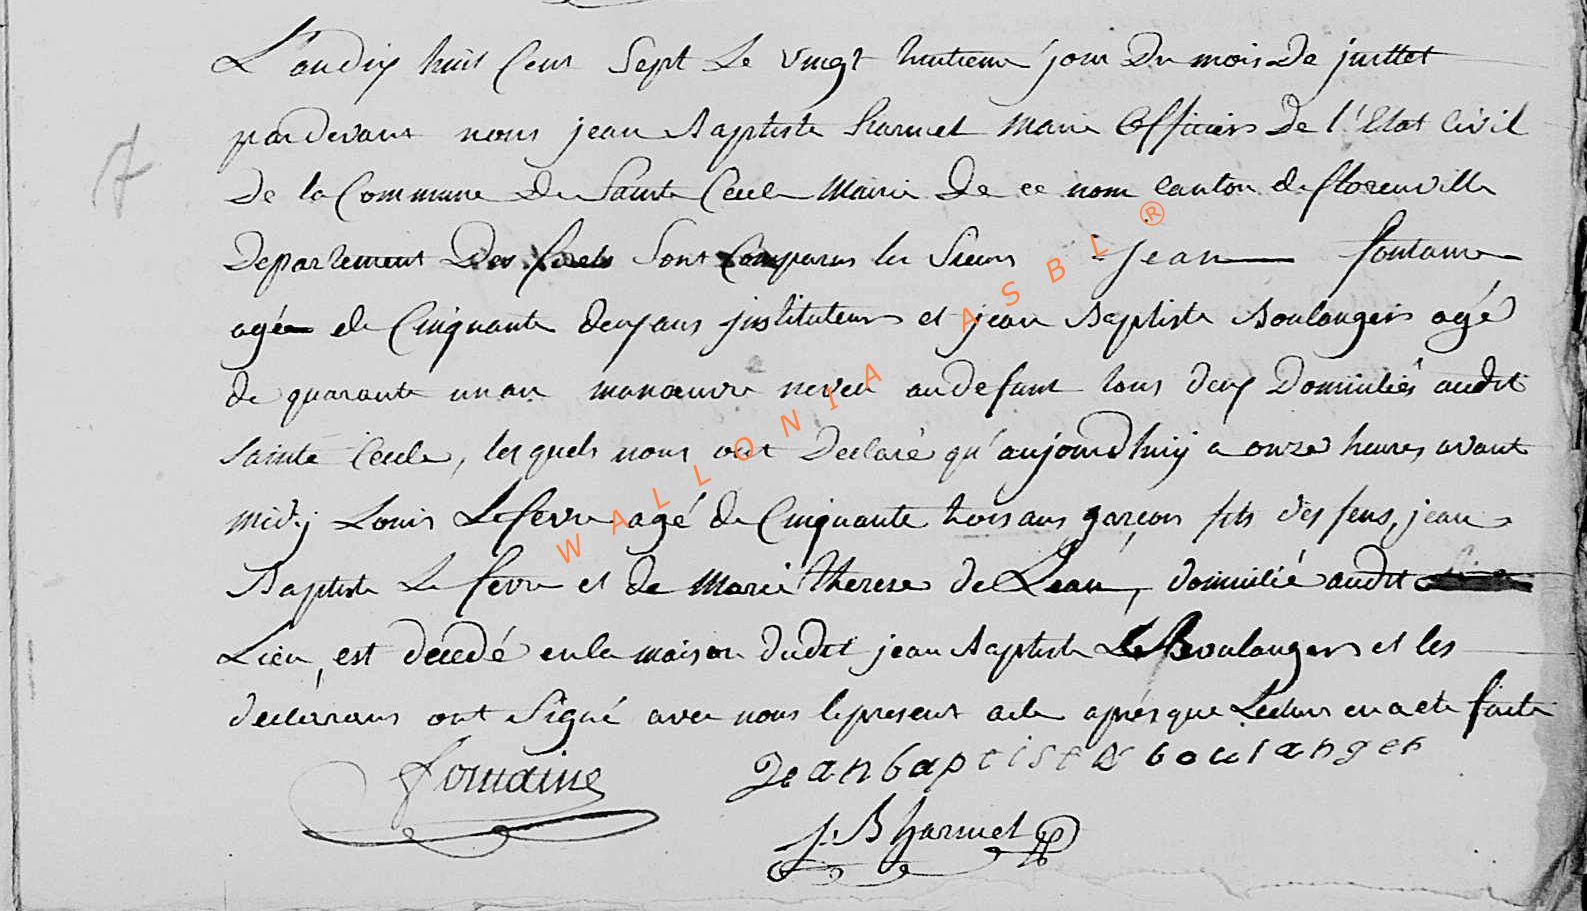 L'an dix huit Cent Sept Le vingt huitieme jour Du mois De juillet
pardevant nous jean Baptiste harmel Maire Officiers De l'Etat Civil
De la Commune De Sainte Cecile Mairie De ce nom Canton de florenville
Departement Des forets Sont Comparus les Sieurs jean fontaine
agée de Cinquante deux ans jnstituteurs et jean Baptiste Boulangers agé
de quarante un an manoeuvre neveu au defunt tous deux Domiciliés audit
Sainte Cecile, lesquels nous ont Declaré qu'aujourd'huy a onze heures avant
midy Louis Lefevre agé de Cinquante trois ans garçon fils des feus, jean
Baptiste Lefevre et de Marie therese de Leau, domicilié audit
Lieu, est decedé en la maison dudit jean Baptiste Le Boulangers et les
declarans ont Signé avec nous le present acte aprés que Lecture en a eté faite
fontaine
Jean baptiste boulanger
J. B harmel
WALLONIA ASBL ®